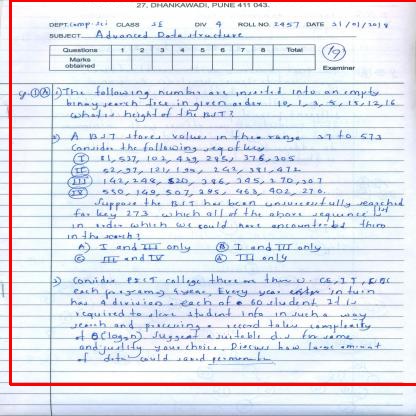 27, DHANKAWADI, PUNE 411 043.
DEPT. Comp. Sci CLASS SE DIV 4 ROLL NO. 2457 DATE 31/01/2018
SUBJECT Advanced Data structure
Questions 1 2 3 4 5 6 7 8 Total
Marks obtained
19
Examiner
Q.1 A 1) The following number are inserted into an empty
binary search tree in given order 10, 1, 3, 5, 15, 12, 16
what is height of the BST?
2) A BST stores values in the range 37 to 573
Consider the following seq of key
I 81, 537, 102, 439, 285, 376, 305
II 52, 97, 121, 195, 242, 381, 472
III 142, 248, 520, 386, 345, 270, 307
IV 550, 149, 507, 395, 463, 402, 270.
Suppose the BST has been unsuccessfully searched
for key 273. which all of the above sequence list
in order which we could have encountered them
in the search?
A) I and III only B) I and III only
C) III and IV A) III only
3) Consider PICT college there are three
each program 4 year. Every year in turn
has 4 division. each of 60 student It is
required to store student info in such a way
search and processing a record takes complexity
of θ(log2n) suggest a suitable d.s for same
and justify your choice. Discuss how large amount
of data could